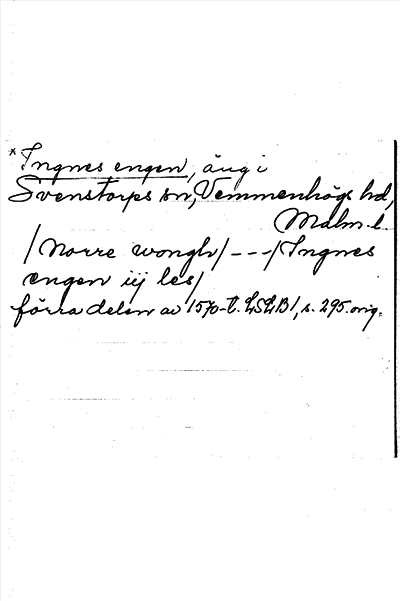 * Ingnes engen, äng i
Svenstorps sn, Vemmenhögs hd,
Malm. l.
/Norre wongh/ - - - /Ingnes
engen iij les/
förra delen av 1570-t. LSLB I, s. 295. orig.